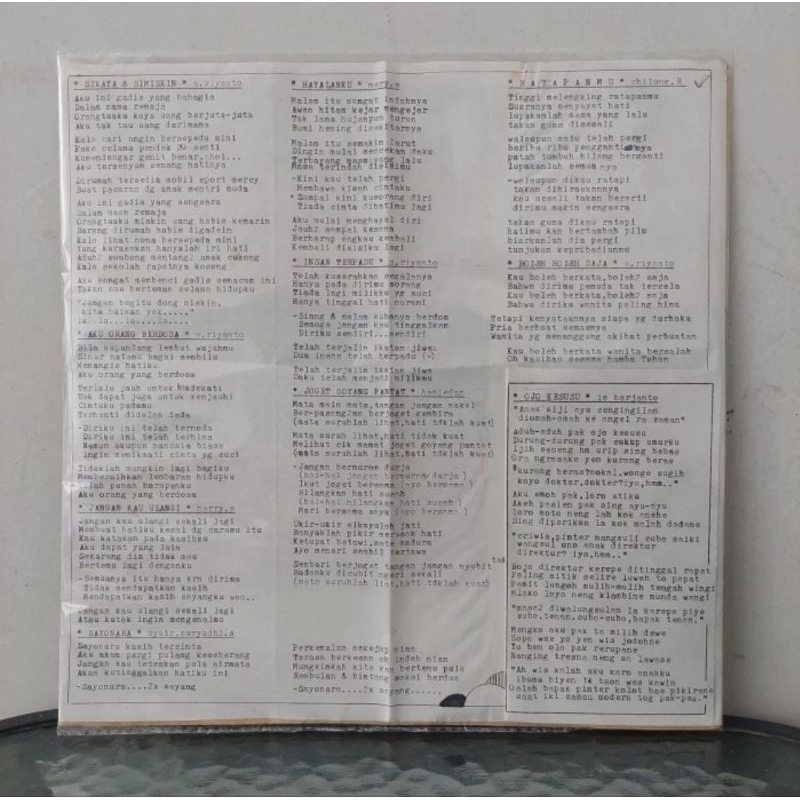 * SIKAYA & SIMISKIN * a.riyanto
Aku ini gadis yang bahagia
Dalam masa remaja
Orangtuaku kaya uang berjuta-juta
Aku tak tau uang darimana
Kalo cari angin bersepeda mini
Pake celana pendek 20 senti
Kumendengar genit benar,ohoi...
Aku tersenyum senang hatinya
Dirumah tersedia mobil sport mersy
Buat pacaran dg anak mentri muda
Aku ini gadis yang sengsara
Dalam masa remaja
Orangtuaku miskin uang habis kemarin
Barang dirumah habis digadein
Kalo lihat nona bersepeda mini
Yang kurasakan hanyalah iri hati
Aduh2 sombong mentang2 anak cukong
Kalo sekolah rapotnya kosong
Aku sangat membenci gadis semacam ini
Takan mau berteman selama hidupku
"Jangan begitu dong miskin,
kita baikan yok....."
la..la...la....la...
* AKU ORANG BERDOSA * a.riyanto
Bila kupandang lembut wajahmu
Sinar matamu bagai sembilu
Menangis hatiku
Aku orang yang berdosa
Terlalu jauh untuk kudekati
Tak dapat juga untuk menjauhi
Cintaku padamu
Terhenti didalam dada
-Diriku ini telah ternoda
Diriku ini telah terhina
Namun akupun manusia biasa
Ingin menikmati cinta yg suci
Tidaklah mungkin lagi bagiku
Membersihkan lembaran hidupku
Telah punah harapanku
Aku orang yang berdosa
* JANGAN KAU ULANGI * harry.s
Jangan kau ulangi sekali lagi
Membuat hatiku kesal dg caramu itu
Kau katakan pada kasihku
Aku dapat yang lain
Sekarang dia tidak mau
Bertemu lagi denganku
-Semuanya itu hanya krn dirimu
Tidak mendapatkan kasih
Mendapatkan kasih sayangku woo..
Jangan kau ulangi sekali lagi
Atau kutak ingin mengenalmu
* SAYONARA *
Sayonara kasih tercinta
Aku akan pergi pulang keseberang
Jangan kau teteskan pula airmata
Akan kutinggalkan hatiku ini
-Sayonara....2x sayang
* HAYALANKU * harry.s
Malam itu sangat indahnya
Awan hitam kejar mengejar
Tak lama hujanpun turun
Bumi hening disekitarnya
Malam itu semakin larut
Dingin mulai mencekam daku
Terbayang masa yang lalu
Masa terindah disisimu
-Kini kau telah pergi
Membawa kisah cintaku
Sampai kini kuseorang diri
Tiada cinta dihatimu lagi
Aku mulai menghayal diri
Jauh2 sampai kesana
Berharap engkau kembali
Kembali disisiku lagi
* INSAN TERPADU * a.riyanto
Telah kuserahkan segalanya
Hanya pada dirimu seorang
Tiada lagi milikku yg suci
Hanya tinggal hati murni
-Siang & malam kuhanya berdoa
Semoga jangan kau tinggalkan
Diriku sendiri...sendiri
Telah terjalin ikatan jiwa
Dua insan telah terpadu (-)
Telah terjalin ikatan jiwa
Daku telah menjadi milikmu
* JOGET GOYANG PANTAT *
Mata main mata,tangan jangan nakal
Ber-pasang2an berjoget gembira
(mata suruhlah lihat,hati tdklah kuat)
Mata suruh lihat,hati tidak kuat
Melihat cik mamat joget goyang pantat
(mata suruhlah lihat,hati tdklah kuat)
-Jangan bermuram durja
(hai-hai jangan bermuram durja )
Ikut joget bersama (ayo bersama )
Hilangkan hati susah
(hai-hai hilangkan hati susah )
Mari bersama saya (ayo bersama )
Ukir-ukir sikayalah jati
Banyaklah pikir merusak hati
Ketupat betawi,sate madura
Ayo menari sambil tertawa
Sembari berjoget tangan jangan nyubit
Badanku dicubit ngeri sekali tak
(mata suruhlah lihat,hati tdklah kuat)
Perkenalan sekejap nian
Terasa berkesan oh indah nian
Mungkinkah kita kan bertemu pula
Rembulan & bintang bakal berdua
-Sayonara....2x sayang......
* R A T A P A N M U * chilung.R
Tinggi melengking ratapanmu
Suaranya menyayat hati
lupakanlah masa yang lalu
takan guna disesali
walaupun satu telah pergi
beribu ribu penggantinya
patah tumbuh hilang berganti
lupakanlah semua nya
-walaupun dikau ratapi
takan dihiraukannya
kau sesali takan berarti
dirimu makin sengsara
takan guna dikau ratapi
hatimu kan bertambah pilu
biarkanlah dia pergi
tunjukan kepribadianmu
* BOLEH BOLEH SAJA * a.riyanto
Kau boleh berkata,boleh2 saja
Bahwa dirimu pemuda tak tercela
Kau boleh berkata,boleh2 saja
Bahwa diriku wanita paling hina
Tetapi kenyataannya siapa yg durhaka
Pria berbuat semaunya
Wanita yg menanggung akibat perbuatan
Kau boleh berkata wanita bersalah
Oh kasihan sesama hamba Tuhan
* OJO KESUSU * is harjanto
"Anak siji ayo cengingilan
diomah-omah ke angel ra zaman"
Aduh-aduh pak ojo kesusu
Durung-durung pak cukup umurku
Ijih seneng ha urip sing bebas
Ora ngrasake yen kurang beras
"kurang beras?mokal,wonge sugih
koyo dokter,dokter?iyo,hmm.."
Aku emoh pak,loro atiku
Akeh pasien pak sing ayu-ayu
loro moto neng lah kok anehe
Sing diperikse la kok malah dadane
"criwis,pinter mangsuli cubo saiki
wangsul ono anak direktur
direktur? iyo,hm.."
Bojo direktur kerepe ditinggal rapat
Paling sitik selire luweh to papat
Pamit lungo mulih-mulih tengah wingi
Mlaku loyo neng klambine munda wangi
"maca2 diwalungsulan la karepe piye
cubo,tenan,cubo-cubo,bapak tenan."
Mengko aku pak to milih dewe
Sopo wae yo yen wis jodohne
Yo ben olo pak rerupane
Nanging tresna neng sa lawase
"Ah wis kalah aku karo anakku
ibumu biyen 14 taon wes kawin
Oalah bapak pinter kolot bae pikirane
saat iki zaman modern tog pak-pak."